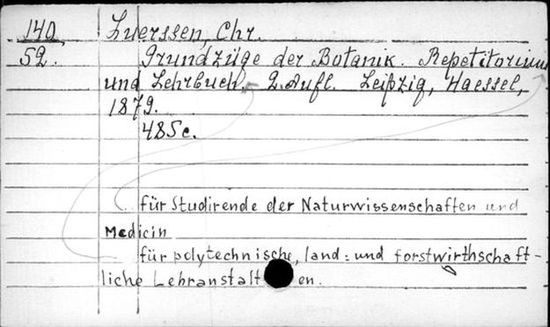 140 Luerssen, Chr.
52. Grundzüge der Botanik. Repetitorium
und Lehrbuch. 2. Aufl. Leipzig, Haessel,
1879.
485c.
für Studirende der Naturwissenschaften und
Medicin
für polytechnische, land= und forstwirthschaft-
liche Lehranstalten.